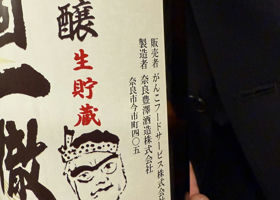 販売者 がんこフードサービス株式会
製造者 奈良豊澤酒造株式会社
奈良市今市町四〇五
醸
生貯蔵
一徹